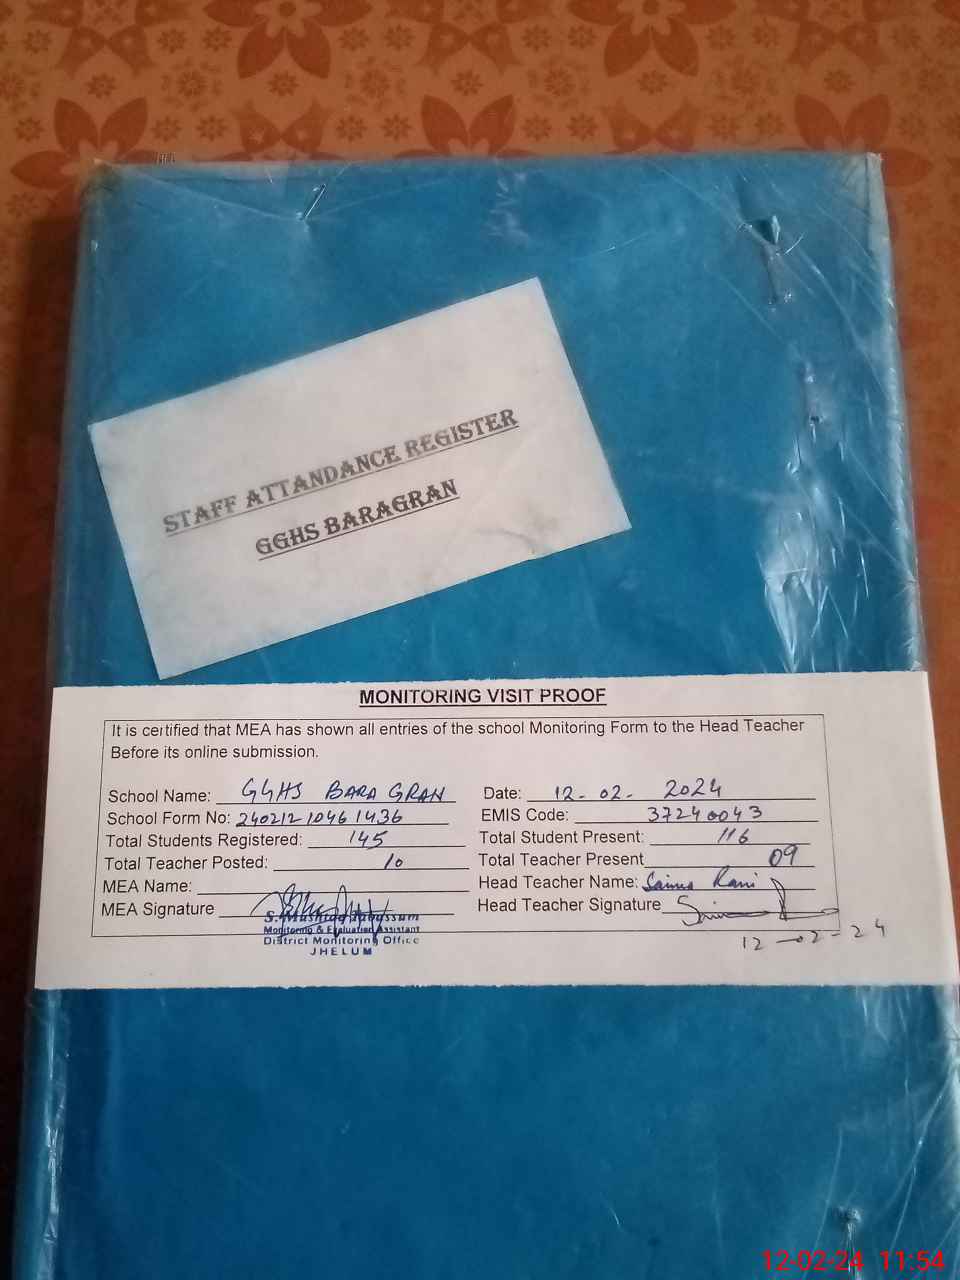 STAFF ATTANDANCE REGISTER
GGHS BARAGRAN
MONITORING VISIT PROOF
It is certified that MEA has shown all entries of the school Monitoring Form to the Head Teacher
Before its online submission.
School Name: GGHS BARA GRAN
Date: 12-02-2024
School Form No: 24021210461436
EMIS Code: 37240043
Total Students Registered: 145
Total Student Present: 116
Total Teacher Posted: 10
Total Teacher Present 09
MEA Name:
Head Teacher Name: Saima Rani
MEA Signature
Head Teacher Signature
S. Mushtaq Tabassum
Monitoring & Evaluation Assistant
District Monitoring Office
JHELUM
12-02-24
12-02-24 11:54